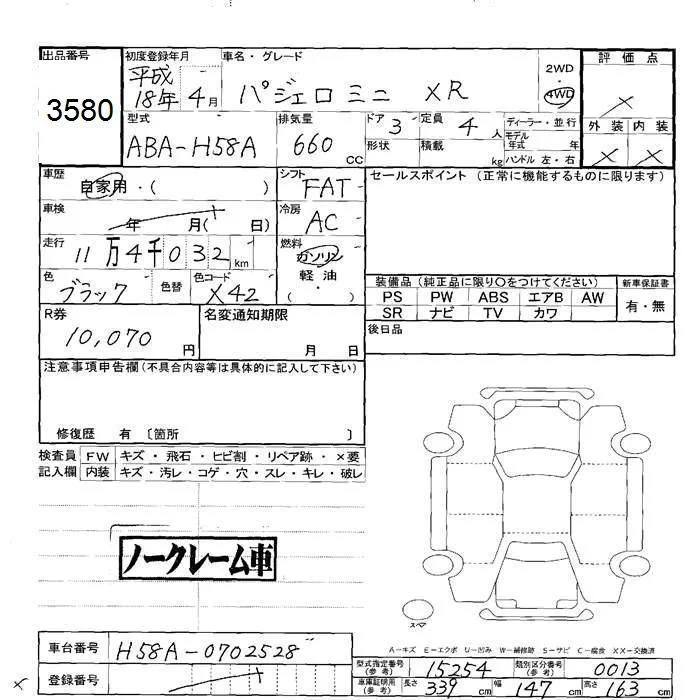 出品番号
3580
初度登録年月
平成
18年 4月
車名・グレード
パジェロミニ XR
2WD
・
4WD
評価点
×
外装 内装
× ×
型式
ABA-H58A
排気量
660 CC
ドア 3
形状
定員 4 人
積載 kg
ディーラー・並行
モデル
年式 年
ハンドル 左・右
車歴
自家用・( )
シフト
FAT
セールスポイント (正常に機能するものに限ります)
車検
年 月( 日)
冷房
AC
走行
11万4千032 km
燃料
ガソリン
軽油
・
( )
色
ブラック
色替
色コード
X42
装備品 (純正品に限り○をつけてください)
PS PW ABS エアB AW
SR ナビ TV カワ
新車保証書
有・無
後日品
R券
10,070 円
名変通知期限
月 日
注意事項申告欄 (不具合内容等は具体的に記入して下さい)
修復歴 有 〔箇所 〕
検査員
記入欄
FW キズ・飛石・ヒビ割・リペア跡・×要
内装 キズ・汚レ・コゲ・穴・スレ・キレ・破レ
ノークレーム車
スペア
A-キズ E-エクボ U-凹み W-補修跡 S-サビ C-腐食 XX-交換済
車台番号 H58A-0702528
登録番号
×
型式指定番号
(参考)
15254
類別区分番号
(参考)
0013
車庫証明用
(参考)
長さ 339 cm 幅 147 cm 高さ 163 cm